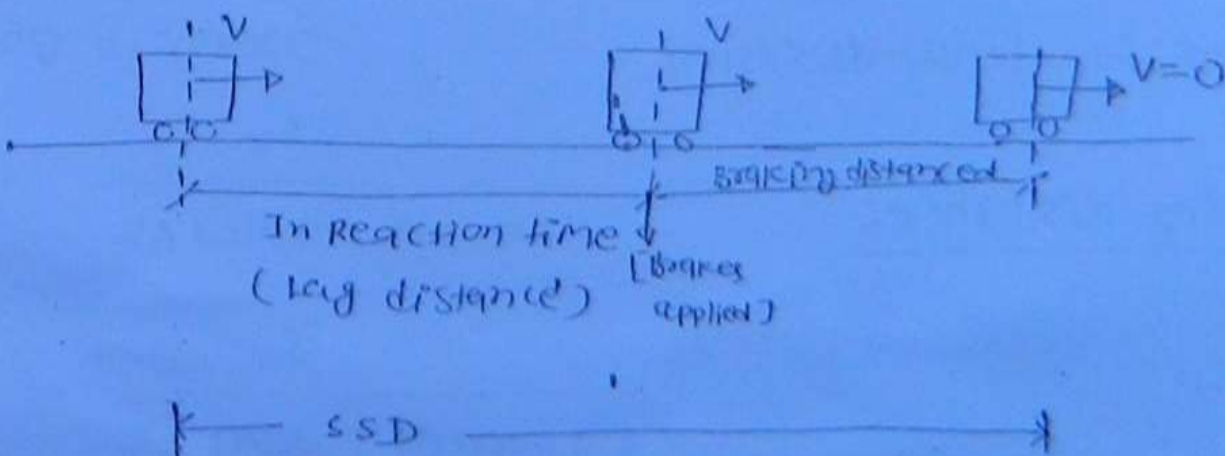 V
V
V=0
Braking distance
In Reaction time
(Lag distance)
[Brakes
applied]
SSD